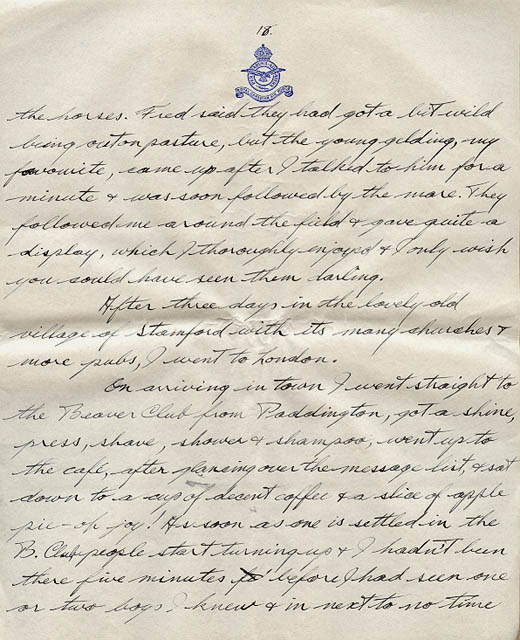 18.
the horses. Fred said they had got a bit wild
being out on pasture, but the young gelding, my
favourite, came up after I talked to him for a
minute & was soon followed by the mare. They
followed me around the field & gave quite a
display, which I thoroughly enjoyed & I only wish
you could have seen them darling.
After three days in the lovely old
village of Stamford with its many churches &
more pubs, I went to London.
On arriving in town I went straight to
the Beaver Club from Paddington, got a shine,
press, shave, shower & shampoo, went up to
the café, after glancing over the message list, & sat
down to a cup of decent coffee & a slice of apple
pie - oh joy! As soon as one is settled in the
B. Club people start turning up & I hadn't been
there five minutes before I had seen one
or two boys I knew & in next to no time